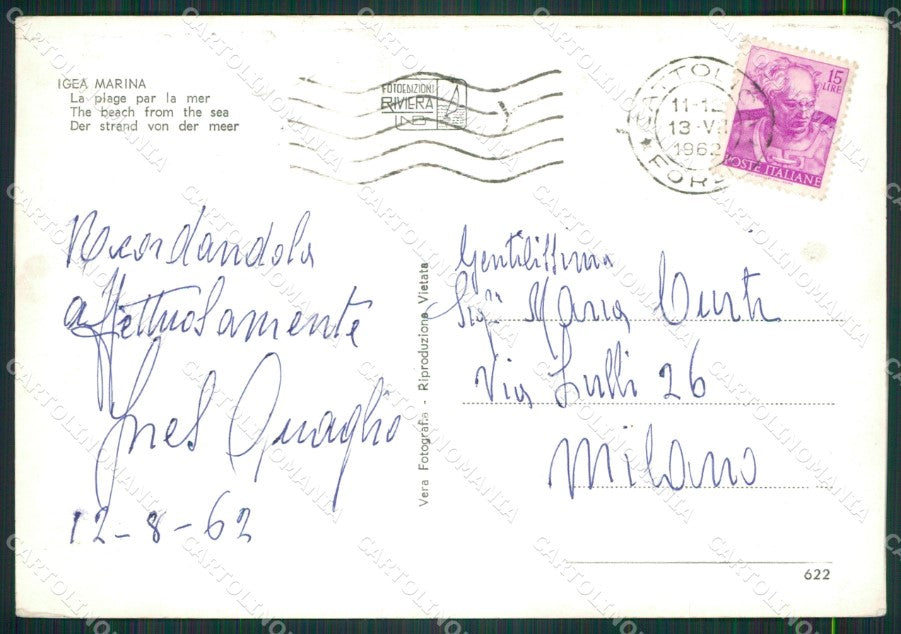 IGEA MARINA
La plage par la mer
The beach from the sea
Der strand von der meer
FOTOEDIZIONI
RIVIERA
11-12
13-VI
1962
FOR
15
LIRE
POSTE ITALIANE
Ricordandola
affettuosamente
Ines Quaglio
12-8-62
Vera Fotografia - Riproduzione Vietata
Gentilissima
Sig. Maria Curti
Via Lulli 26
Milano
622
CARTOLINOMANIA